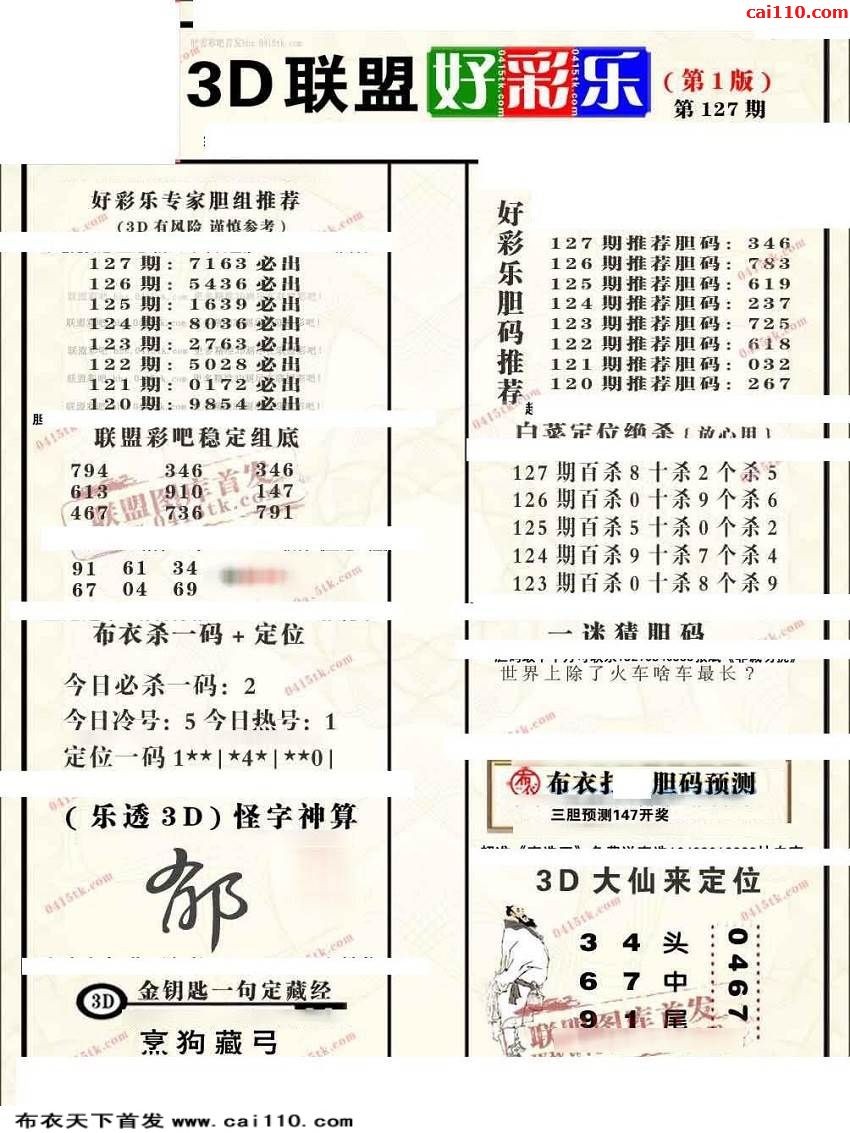 cai110.com
3D联盟好彩乐(第1版)
第127期
好彩乐专家胆组推荐
(3D有风险 谨慎参考)
127期: 7163必出
126期: 5436必出
125期: 1639必出
124期: 8036必出
123期: 2763必出
122期: 5028必出
121期: 0172必出
120期: 9854必出
联盟彩吧稳定组底
794 346 346
613 910 147
467 736 791
91 61 34
67 04 69
布衣杀一码+定位
今日必杀一码: 2
今日冷号: 5 今日热号: 1
定位一码 1**|*4*|**0|
(乐透3D)怪字神算
郁
3D 金钥匙一句定藏经
烹狗藏弓
好彩乐胆码推荐
127期推荐胆码: 346
126期推荐胆码: 783
125期推荐胆码: 619
124期推荐胆码: 237
123期推荐胆码: 725
122期推荐胆码: 618
121期推荐胆码: 032
120期推荐胆码: 267
白菜定位绝杀(放心用)
127期百杀8十杀2个杀5
126期百杀0十杀9个杀6
125期百杀5十杀0个杀2
124期百杀9十杀7个杀4
123期百杀0十杀8个杀9
一迷猜胆码
世界上除了火车啥车最长?
布衣 胆码预测
三胆预测147开奖
3D大仙来定位
3 4 头
6 7 中
9 1 尾
0467
联盟图库首发
0415tk.com
布衣天下首发 www.cai110.com